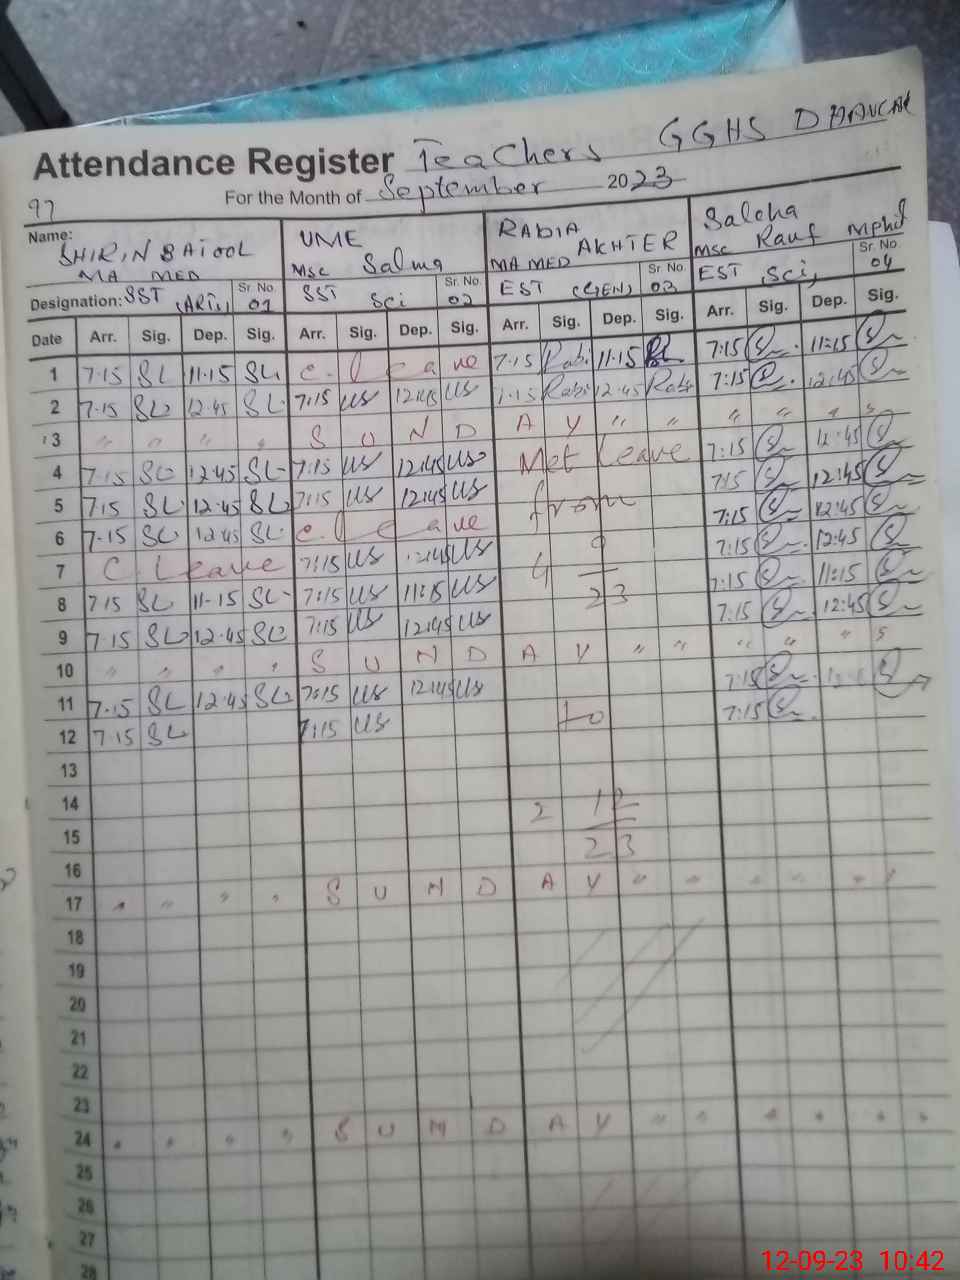 Attendance Register Teachers GGHS DHAUCAR
For the Month of September 2023
97
Name: SHIRIN BATOOL MA MED
UME Salma MSC
RABIA AKHTER MA MED
Saleha Rauf MSC Mphil
Designation: SST (ARTS) Sr. No. 01
SST Sci Sr. No. 02
EST (GEN) Sr. No. 03
EST Sci, Sr. No. 04
Date Arr. Sig. Dep. Sig. Arr. Sig. Dep. Sig. Arr. Sig. Dep. Sig. Arr. Sig. Dep. Sig.
1 7·15 SL 11·15 SL C. leave 7·15 Rabi 11·15 7:15 11:15
2 7·15 SL 12·45 SL 7:15 US 12:45 US 7·15 Rabi 12·45 Rabi 7:15 12:45
3 " " " " S U N D A Y " " " " " "
4 7·15 SL 12·45 SL 7:15 US 12:45 US Met leave 7:15 12:45
5 7·15 SL 12·45 SL 7:15 US 12:45 US from 7:15 12:45
6 7·15 SL 12·45 SL C. leave 7:15 12:45
7 C. Leave 7:15 US 12:45 US 4 9 7:15 12:45
8 7·15 SL 11·15 SL 7:15 US 11:15 US 23 7:15 11:15
9 7·15 SL 12·45 SL 7:15 US 12:45 US 7:15 12:45
10 " " " " S U N D A Y " " " " " "
11 7·15 SL 12·45 SL 7:15 US 12:45 US 7:15
12 7·15 SL 7:15 US to 7:15
13
14 2 12
15 23
16
17 " " " " S U N D A Y " " " " " "
18
19
20
21
22
23
24 " " " " S U N D A Y " " " " " "
25
26
27
28
12-09-23 10:42